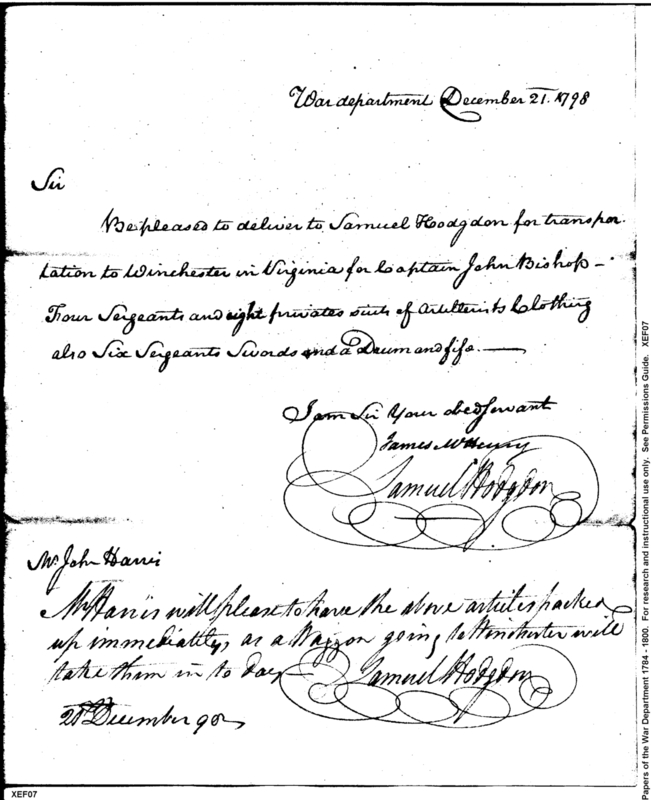 War department December 21. 1798
Sir
Be pleased to deliver to Samuel Hodgdon for transpor-
tation to Winchester in Virginia for Captain John Bishop -
Four Sergeants and eight privates suits of Artillerists Clothing
also Six Sergeants Swords and a Drum and fife.
I am Sir Your obed servant
James McHenry
Samuel Hodgdon
Mr. John Harris
Mr Harris will please to have the above articles packed
up immediately, as a Waggon going to Winchester will
take them in to day
Samuel Hodgdon
21st December 98
XEF07
Papers of the War Department 1784 - 1800. For research and instructional use only. See Permissions Guide. XEF07